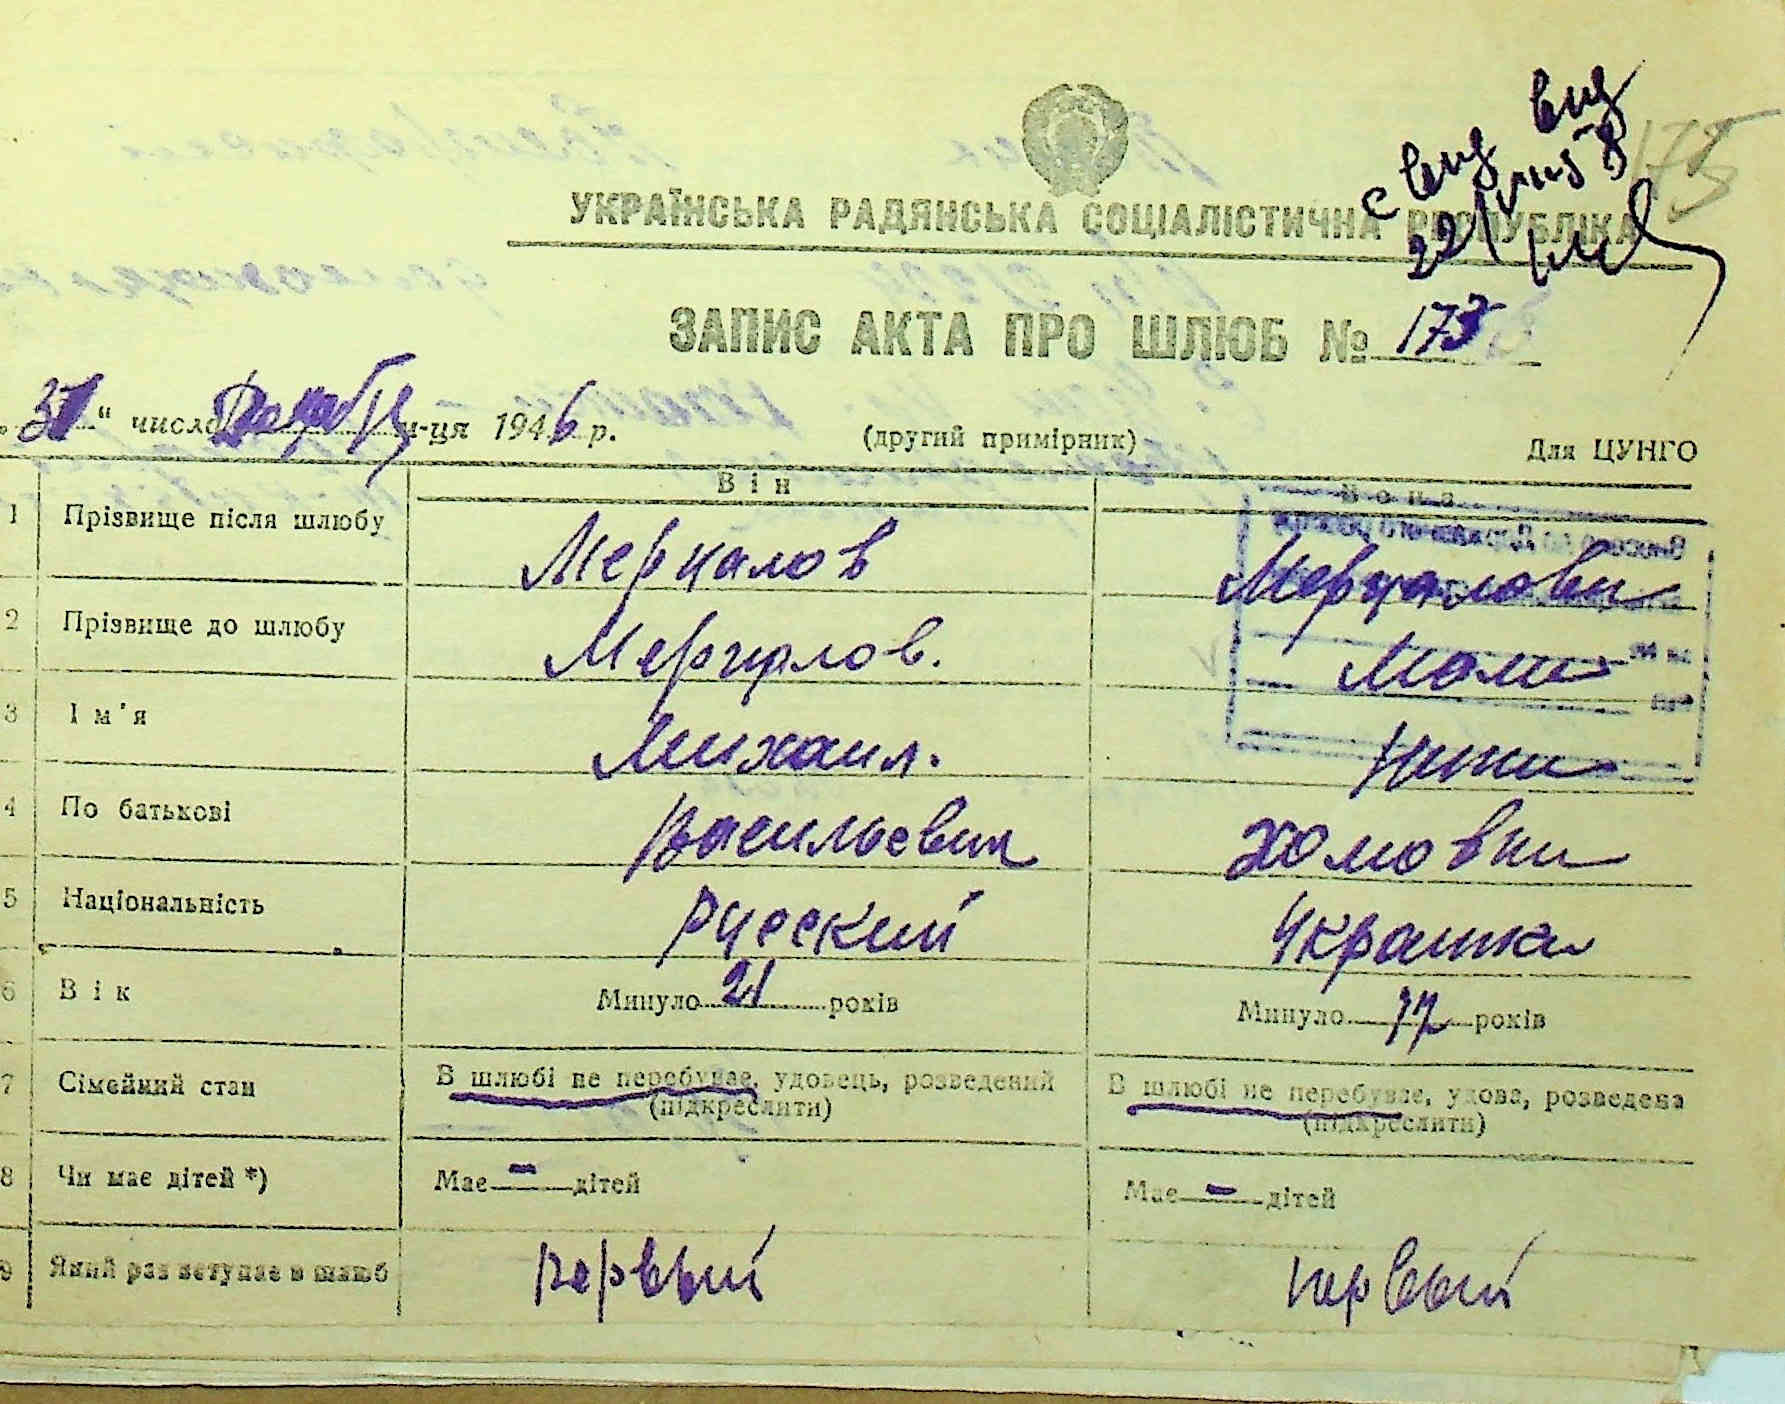 с вид вид
УКРАЇНСЬКА РАДЯНСЬКА СОЦІАЛІСТИЧНА РЕСПУБЛІКА
ЗАПИС АКТА ПРО ШЛЮБ № 173
„31" числа Декабря м-ця 1946 р. (другий примірник) Для ЦУНГО
Він Вона
1 Прізвище після шлюбу Мерцалов Мерцалова
2 Прізвище до шлюбу Мерцалов.
3 Ім'я Михаил. Нина
4 По батькові Васильевич Хомовна
5 Національність Русский Украинка
6 Вік Минуло 21 років Минуло років
7 Сімейний стан В шлюбі не перебуває, удовець, розведений В шлюбі не перебуває, удова, розведена
(підкреслити) (підкреслити)
8 Чи має дітей *) Має – дітей Має – дітей
9 Який раз вступає в шлюб первый первый